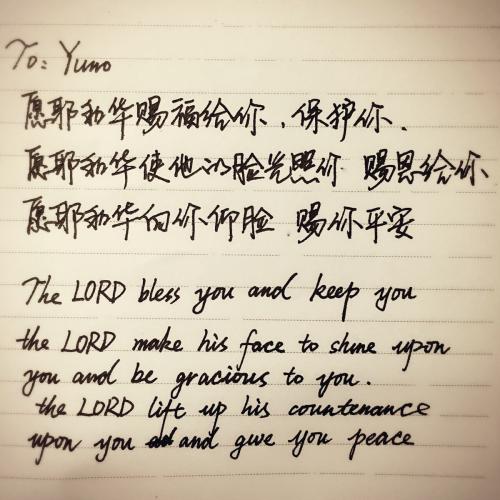 To: Yuno
愿耶和华赐福给你,保护你.
愿耶和华使他的脸光照你 赐恩给你.
愿耶和华向你仰脸 赐你平安
The LORD bless you and keep you
the LORD make his face to shine upon
you and be gracious to you.
the LORD lift up his countenance
upon you and give you peace